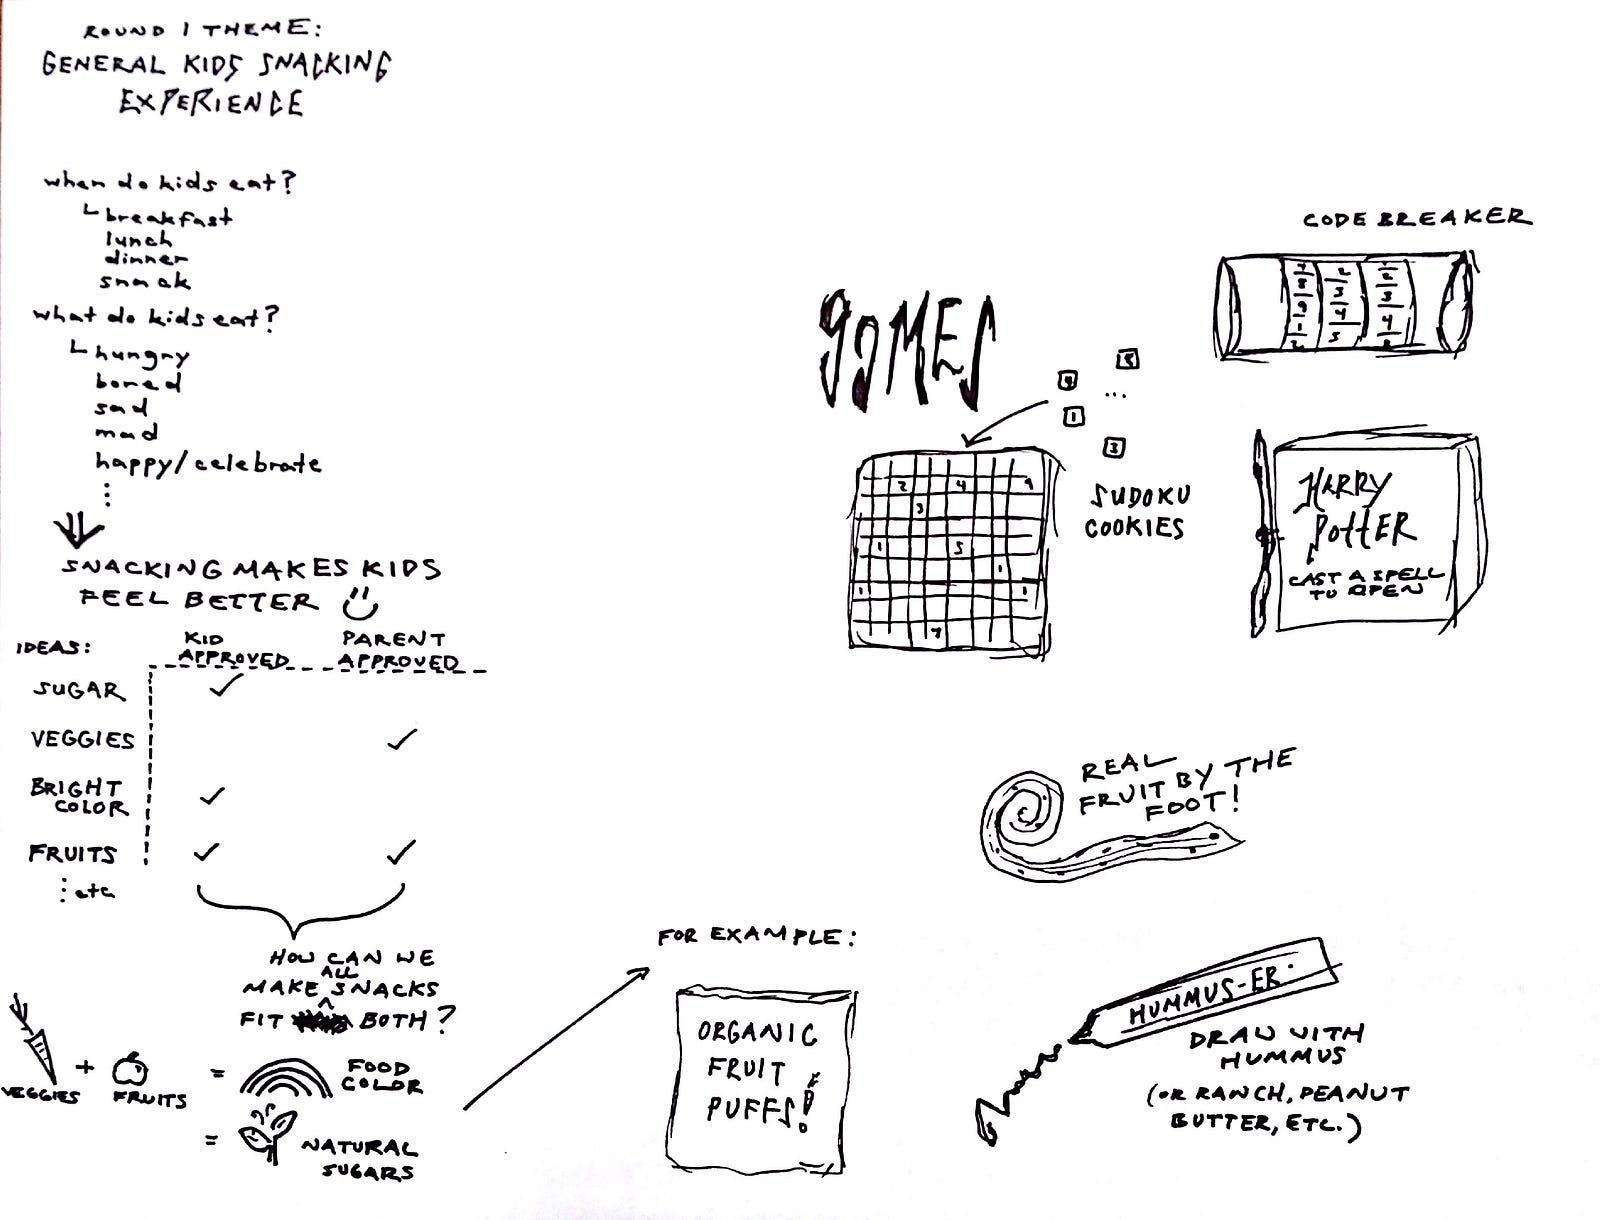 ROUND 1 THEME:
GENERAL KIDS SNACKING
EXPERIENCE
when do kids eat?
breakfast
lunch
dinner
snack
what do kids eat?
hungry
bored
sad
mad
happy/celebrate
SNACKING MAKES KIDS
FEEL BETTER
IDEAS:
KID
APPROVED
PARENT
APPROVED
SUGAR
VEGGIES
BRIGHT
COLOR
FRUITS
etc
HOW CAN WE
ALL
MAKE SNACKS
FIT BOTH?
VEGGIES
+
FRUITS
=
FOOD
COLOR
=
NATURAL
SUGARS
FOR EXAMPLE:
ORGANIC
FRUIT
PUFFS!
GAMES
5
1
3
2 4 9
3
1 5
1
1 1
7
SUDOKU
COOKIES
CODE BREAKER
HARRY
POTTER
CAST A SPELL
TO OPEN
REAL
FRUIT BY THE
FOOT!
HUMMUS-ER
DRAW WITH
HUMMUS
(OR RANCH, PEANUT
BUTTER, ETC.)